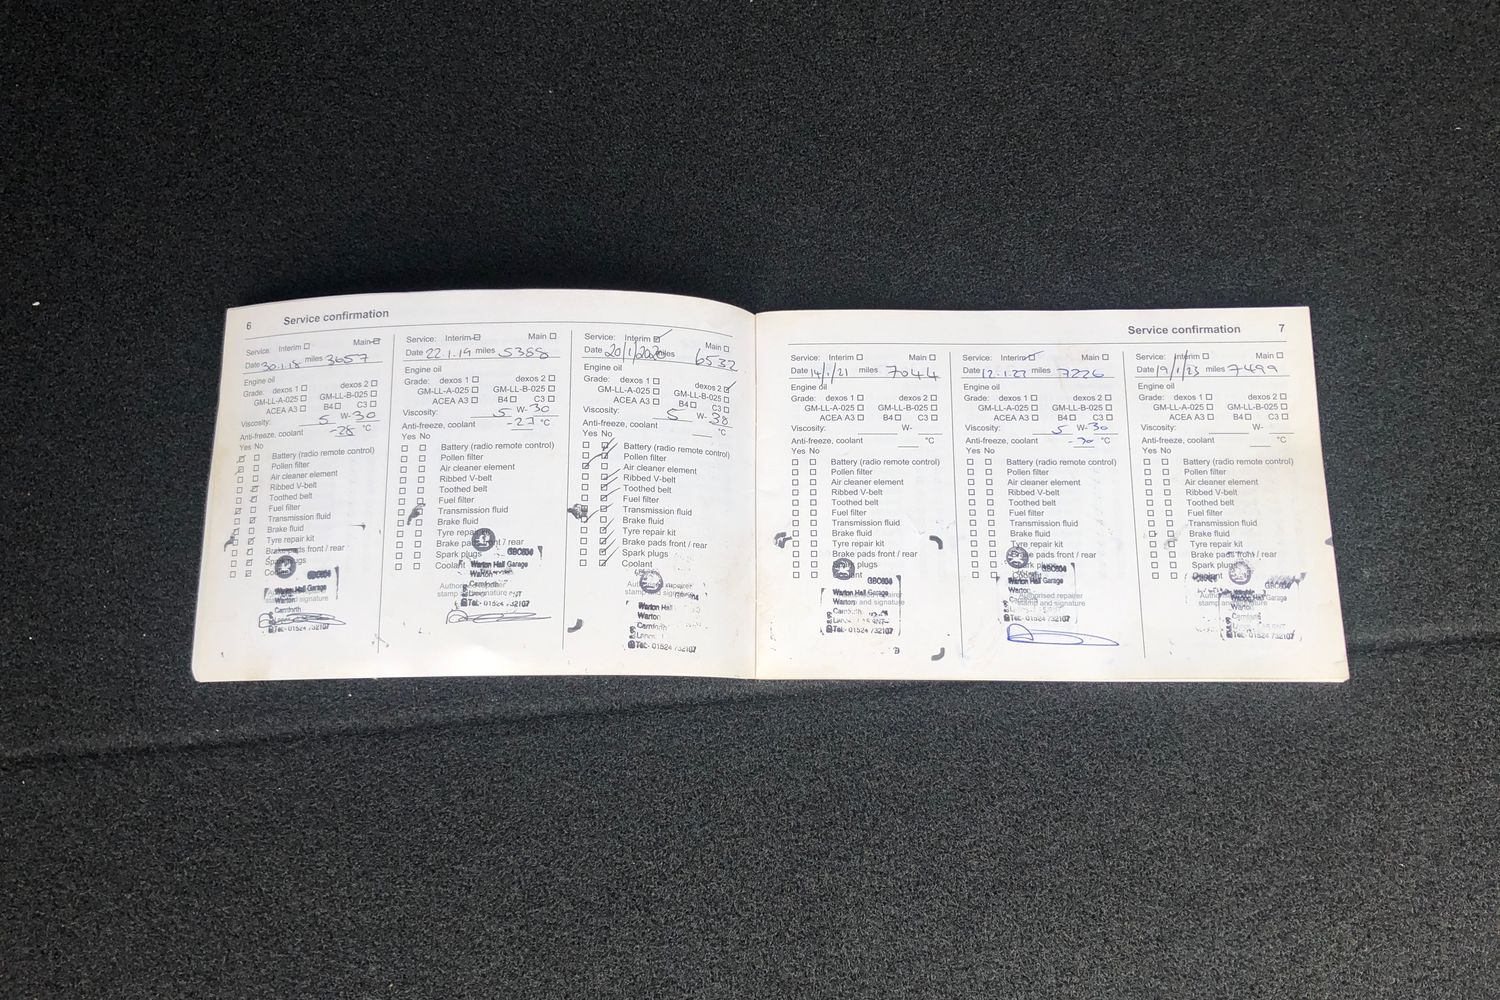 6 Service confirmation
Service: Interim Main
Date 30.1.18 miles 3657
Engine oil
Grade: dexos 1 dexos 2
GM-LL-A-025 GM-LL-B-025
ACEA A3 B4 C3
Viscosity: 5 W-30
Anti-freeze, coolant -28 °C
Yes No
Battery (radio remote control)
Pollen filter
Air cleaner element
Ribbed V-belt
Toothed belt
Fuel filter
Transmission fluid
Brake fluid
Tyre repair kit
Brake pads front / rear
Spark plugs
GBC604
Warton Hall Garage
Warton
Carnforth
Tel:- 01524 732107
Service: Interim Main
Date 22.1.19 miles 5388
Engine oil
Grade: dexos 1 dexos 2
GM-LL-A-025 GM-LL-B-025
ACEA A3 B4 C3
Viscosity: 5 W-30
Anti-freeze, coolant -27 °C
Yes No
Battery (radio remote control)
Pollen filter
Air cleaner element
Ribbed V-belt
Toothed belt
Fuel filter
Transmission fluid
Brake fluid
Tyre repair kit
Brake pads front / rear
Spark plugs
Coolant
GBC604
Warton Hall Garage
Warton
Carnforth
Tel:- 01524 732107
Service: Interim Main
Date 20/1/2020 miles 6532
Engine oil
Grade: dexos 1 dexos 2
GM-LL-A-025 GM-LL-B-025
ACEA A3 B4 C3
Viscosity: 5 W-30
Anti-freeze, coolant °C
Yes No
Battery (radio remote control)
Pollen filter
Air cleaner element
Ribbed V-belt
Toothed belt
Fuel filter
Transmission fluid
Brake fluid
Tyre repair kit
Brake pads front / rear
Spark plugs
Coolant
Authorised repairer
stamp and signature
Warton Hall
Warton
Carnforth
Tel:- 01524 732107
Service confirmation 7
Service: Interim Main
Date 14/1/21 miles 7044
Engine oil
Grade: dexos 1 dexos 2
GM-LL-A-025 GM-LL-B-025
ACEA A3 B4 C3
Viscosity: W-
Anti-freeze, coolant °C
Yes No
Battery (radio remote control)
Pollen filter
Air cleaner element
Ribbed V-belt
Toothed belt
Fuel filter
Transmission fluid
Brake fluid
Tyre repair kit
Brake pads front / rear
Spark plugs
Coolant
GBC604
Warton Hall Garage
Warton
stamp and signature
Carnforth
Tel:- 01524 732107
Service: Interim Main
Date 12.1.22 miles 7226
Engine oil
Grade: dexos 1 dexos 2
GM-LL-A-025 GM-LL-B-025
ACEA A3 B4 C3
Viscosity: 5 W-30
Anti-freeze, coolant °C
Yes No
Battery (radio remote control)
Pollen filter
Air cleaner element
Ribbed V-belt
Toothed belt
Fuel filter
Transmission fluid
Brake fluid
Tyre repair kit
Brake pads front / rear
plugs
GBC604
Warton Hall Garage
Warton
Authorised repairer
stamp and signature
Tel:- 01524 732107
Service: Interim Main
Date 19/1/23 miles 7499
Engine oil
Grade: dexos 1 dexos 2
GM-LL-A-025 GM-LL-B-025
ACEA A3 B4 C3
Viscosity: W-
Anti-freeze, coolant °C
Yes No
Battery (radio remote control)
Pollen filter
Air cleaner element
Ribbed V-belt
Toothed belt
Fuel filter
Transmission fluid
Brake fluid
Tyre repair kit
Brake pads front / rear
Spark plugs
Coolant
GBC604
Warton Hall
Warton
Carnforth
Tel:- 01524 732107